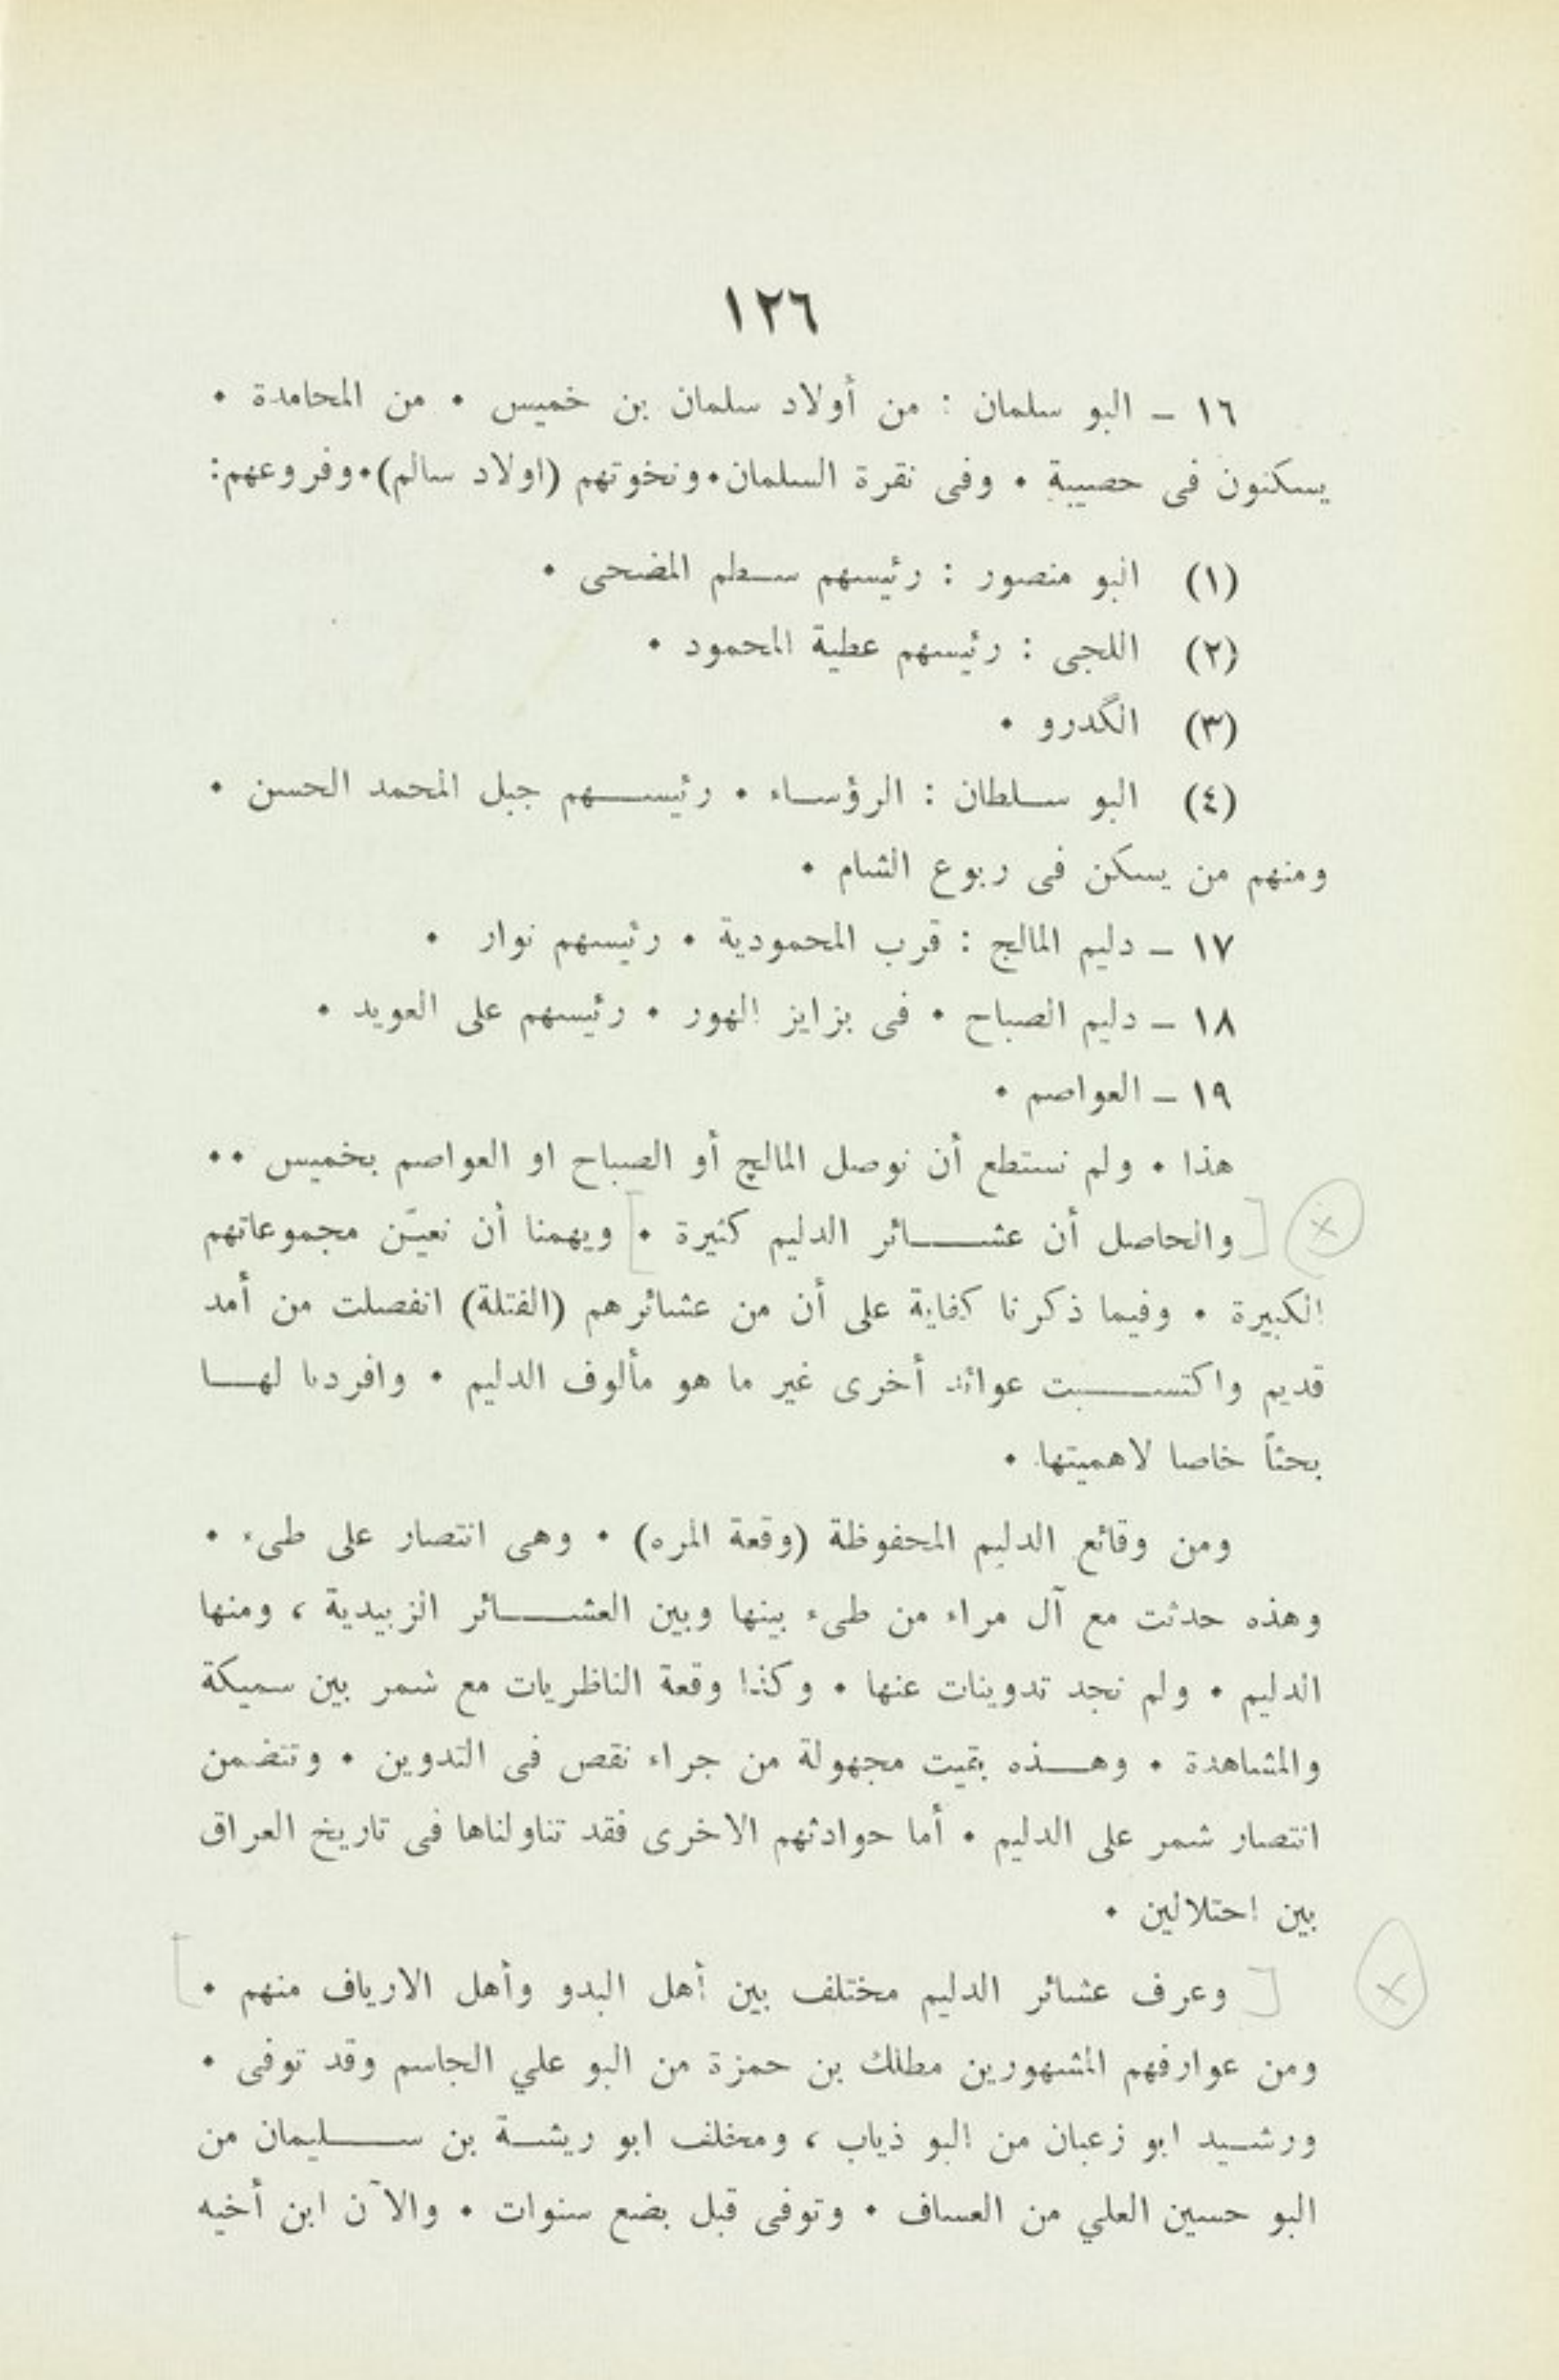 ١٢٦
١٦ ـ البو سلمان : من أولاد سلمان بن خميس ٠ من المحامدة ٠
يسكنون فى حصيبة ٠ وفى نقرة السلمان٠ونخوتهم (اولاد سالم)٠وفروعهم:
(١) البو منصور : رئيسهم سطم المضحى ٠
(٢) اللجى : رئيسهم عطية المحمود ٠
(٣) الگدرو ٠
(٤) البو سلطان : الرؤساء ٠ رئيسهم جبل المحمد الحسن ٠
ومنهم من يسكن فى ربوع الشام ٠
١٧ ـ دليم المالح : قرب المحمودية ٠ رئيسهم نوار ٠
١٨ ـ دليم الصباح ٠ فى بزايز الهور ٠ رئيسهم على العويد ٠
١٩ ـ العواصم ٠
هذا ٠ ولم نستطع أن نوصل المالح أو الصباح او العواصم بخميس ٠٠
والحاصل أن عشائر الدليم كثيرة ٠ ويهمنا أن نعيّن مجموعاتهم
الكبيرة ٠ وفيما ذكرنا كفاية على أن من عشائرهم (الفتلة) انفصلت من أمد
قديم واكتسبت عوائد أخرى غير ما هو مألوف الدليم ٠ وافردنا لها
بحثاً خاصا لاهميتها ٠
ومن وقائع الدليم المحفوظة (وقعة المره) ٠ وهى انتصار على طىء ٠
وهذه حدثت مع آل مراء من طىء بينها وبين العشائر الزبيدية ، ومنها
الدليم ٠ ولم نجد تدوينات عنها ٠ وكذا وقعة الناظريات مع شمر بين سميكة
والمشاهدة ٠ وهذه بقيت مجهولة من جراء نقص فى التدوين ٠ وتتضمن
انتصار شمر على الدليم ٠ أما حوادثهم الاخرى فقد تناولناها فى تاريخ العراق
بين احتلالين ٠
وعرف عشائر الدليم مختلف بين أهل البدو وأهل الارياف منهم ٠
ومن عوارفهم المشهورين مطلك بن حمزة من البو علي الجاسم وقد توفى ٠
ورشيد ابو زعبان من البو ذياب ، ومخلف ابو ريشة بن سليمان من
البو حسين العلي من العساف ٠ وتوفى قبل بضع سنوات ٠ والآن ابن أخيه